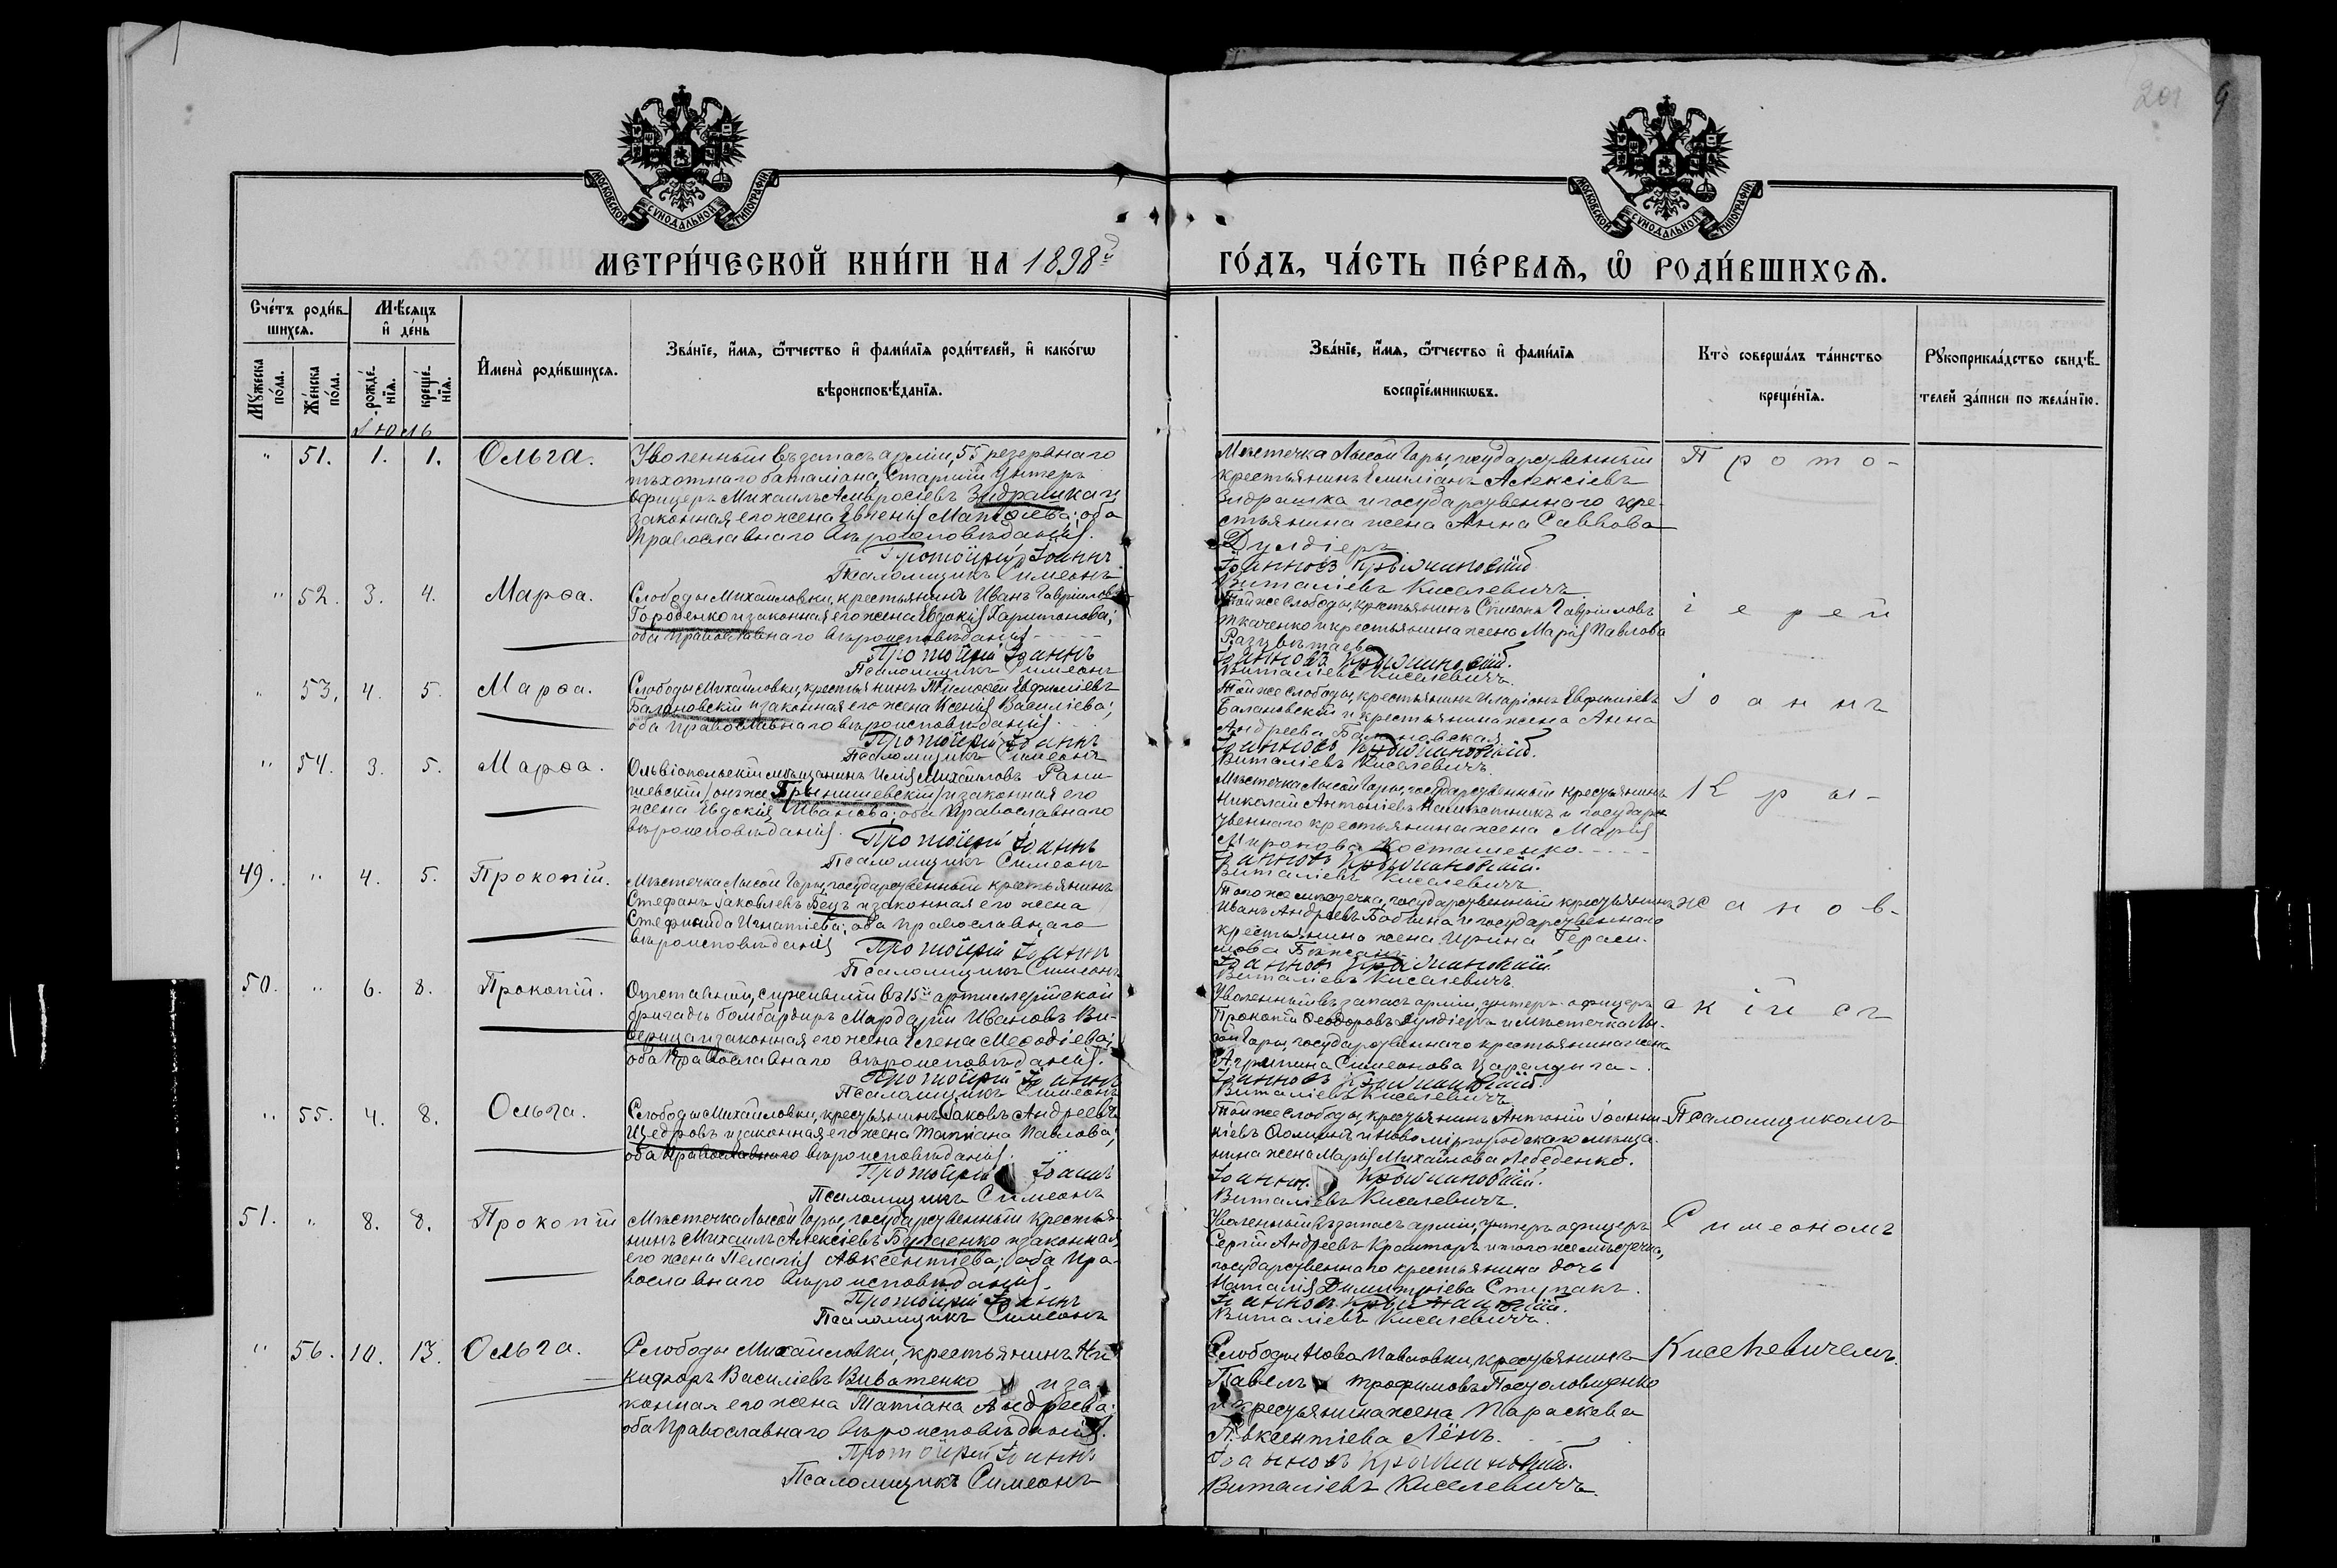 201
9
МОСКОВСКОЙ СѴНОДАЛЬНОЙ ТИПОГРАФІИ
МОСКОВСКОЙ СѴНОДАЛЬНОЙ ТИПОГРАФІИ
МЕТРИ́ЧЕСКОЙ КНИ́ГИ НА 1898й
ГО́ДЪ, ЧА́СТЬ ПЕ́РВАѦ, Ѽ РОДИ́ВШИХСѦ.
Сче́тъ роди́в-
шихсѧ.
Мѣ́сѧцъ
и де́нь
Мꙋ́жеска по́ла.
Же́нска по́ла.
рожде́-нїѧ.
креще́-нїѧ.
И҆мена̀ роди́вшихсѧ.
Зва́нїе, и҆́мѧ, ѻ҆́тчество и҆ фами́лїѧ роди́телей, и҆ како́гѡ
вѣроисповѣ́данїѧ.
Зва́нїе, и҆́мѧ, ѻ҆́тчество и҆ фами́лїѧ
воспрїе́мникѡвъ.
Кто̀ соверша́лъ та́инство
креще́нїѧ.
Рꙋкоприкла́дство свидѣ́-
телей за́писи по жела́нїю.
Іюль
" 51. 1. 1. Ольга.
Уволенный въ запасъ арміи, 55 резервнаго
пѣхотнаго баталіона, Старшій Унтеръ
Офицеръ Михаилъ Амвросіевъ Зидрашка и
законная его жена Евгенія Матѳеева; оба
Православнаго вѣроисповѣданія.
Протоіерей Іоаннъ
Псаломщикъ Симеонъ
Мѣстечка Лысой Горы, государственный
крестьянинъ Емиліанъ Алексіевъ
Зидрашка и государственнаго кре-
стьянина жена Анна Саввова
Дулдіеръ
Іоанновъ Крыжановскій
Виталіевъ Киселевичъ
Прото-
" 52. 3. 4. Марѳа.
Слободы Михайловки, крестьянинъ Иванъ Гавріиловъ
Городенко и законная его жена Евдокія Харитонова;
оба православнаго вѣроисповѣданія
Протоіерей Іоаннъ
Псаломщикъ Симеонъ
Той же Слободы, крестьянинъ Симеонъ Гавріиловъ
Ткаченко и крестьянина жена Марія Павлова
Іоанновъ Крыжановскій.
Виталіевъ Киселевичъ.
іерей
" 53. 4. 5. Марѳа.
Слободы Михайловки, крестьянинъ Тимоѳей Евфиміевъ
Балановскій и законная его жена Ксенія Василіева;
оба православнаго вѣроисповѣданія.
Протоіерей Іоаннъ
Псаломщикъ Симеонъ
Той же слободы, крестьянинъ Иларіонъ Евфиміевъ
Балановскій и крестьянина жена Анна
Андреева Балановская
Іоанновъ Крыжановскій.
Виталіевъ Киселевичъ.
Іоаннъ
" 54. 3. 5. Марѳа.
Ольвіопольскій мѣщанинъ Илія Михаиловъ
(онъ же Грынишевскій) и законная его
жена Евдокія Иванова; оба Православнаго
вѣроисповѣданія.
Протоіерей Іоаннъ
Псаломщикъ Симеонъ
Мѣстечка Лысой Горы, государственный крестьянинъ
Николай Антоніевъ Намѣстникъ и государс-
твеннаго крестьянина жена Марія
Миронова Косташенко
Іоанновъ Крыжановскій.
Виталіевъ Киселевичъ
Кры-
49. " 4. 5. Прокопій.
Мѣстечка Лысой Горы, государственный крестьянинъ
Стефанъ Іаковлевъ Бецъ и законная его жена
Стефанида Игнатіева; оба православнаго
вѣроисповѣданія
Протоіерей Іоаннъ
Псаломщикъ Симеонъ
Того же мѣстечка, государственный крестьянинъ
Иванъ Андреевъ Бабина и государственнаго
крестьянина жена Ирина Гераси-
мова
Іоанновъ Крыжановскій
Виталіевъ Киселевичъ.
жанов-
50. " 6. 8. Прокопій.
Отставной, служившій въ 15й артиллерійской
бригадѣ бомбардиръ Мардарій Ивановъ Ви-
верица и законная его жена Елена Меѳодіева;
оба Православнаго вѣроисповѣданія.
Протоіерей Іоаннъ
Псаломщикъ Симеонъ
Уволенный въ запасъ арміи, унтеръ-офицеръ
Прокопій Ѳеодоровъ Дулдіеръ и мѣстечка Лы-
сой Горы, государственнаго крестьянина жена
Агриппина Симеонова Царалунга
Іоанновъ Крыжановскій.
Виталіевъ Киселевичъ
скій съ
" 55. 4. 8. Ольга.
Слободы Михайловки, крестьянинъ Іаковъ Андреевъ
Щедровъ и законная его жена Татіана Павлова;
оба Православнаго вѣроисповѣданія.
Протоіерей Іоаннъ
Псаломщикъ Симеонъ
Той же слободы, крестьянинъ Антоній Іоанни-
кіевъ и Новомиргородскаго мѣща-
нина жена Марія Михаилова Лебеденко.
Іоаннов. Крыжановскій.
Виталіевъ Киселевичъ.
Псаломщикомъ
51. " 8. 8. Прокопій
Мѣстечка Лысой Горы, государственный крестья-
нинъ Михаилъ Алексіевъ Бугаенко и законная
его жена Пелагія Авксентіева; оба Пра-
вославнаго вѣроисповѣданія.
Протоіерей Іоаннъ
Псаломщикъ Симеонъ
Уволенный въ запасъ арміи, унтеръ офицеръ
Сергій Андреевъ Крамторъ и того же мѣстечка,
государственнаго крестьянина дочь
Наталія Димитріева Ступакъ.
Іоанновъ Крыжановскій.
Виталіевъ Киселевичъ.
Симеономъ
" 56. 10. 13. Ольга.
Слободы Михайловки, крестьянинъ Ни-
кифоръ Василіевъ Виватенко и за-
конная его жена Татіана Андреева;
оба Православнаго вѣроисповѣданія.
Протоіерей Іоаннъ
Псаломщикъ Симеонъ
Слободы Ново Павловки, крестьянинъ
Павелъ Трофимовъ
и крестьянина жена Параскева
Авксентіева Лёнъ.
Іоанновъ Крыжановскій.
Виталіевъ Киселевичъ.
Киселевичемъ.